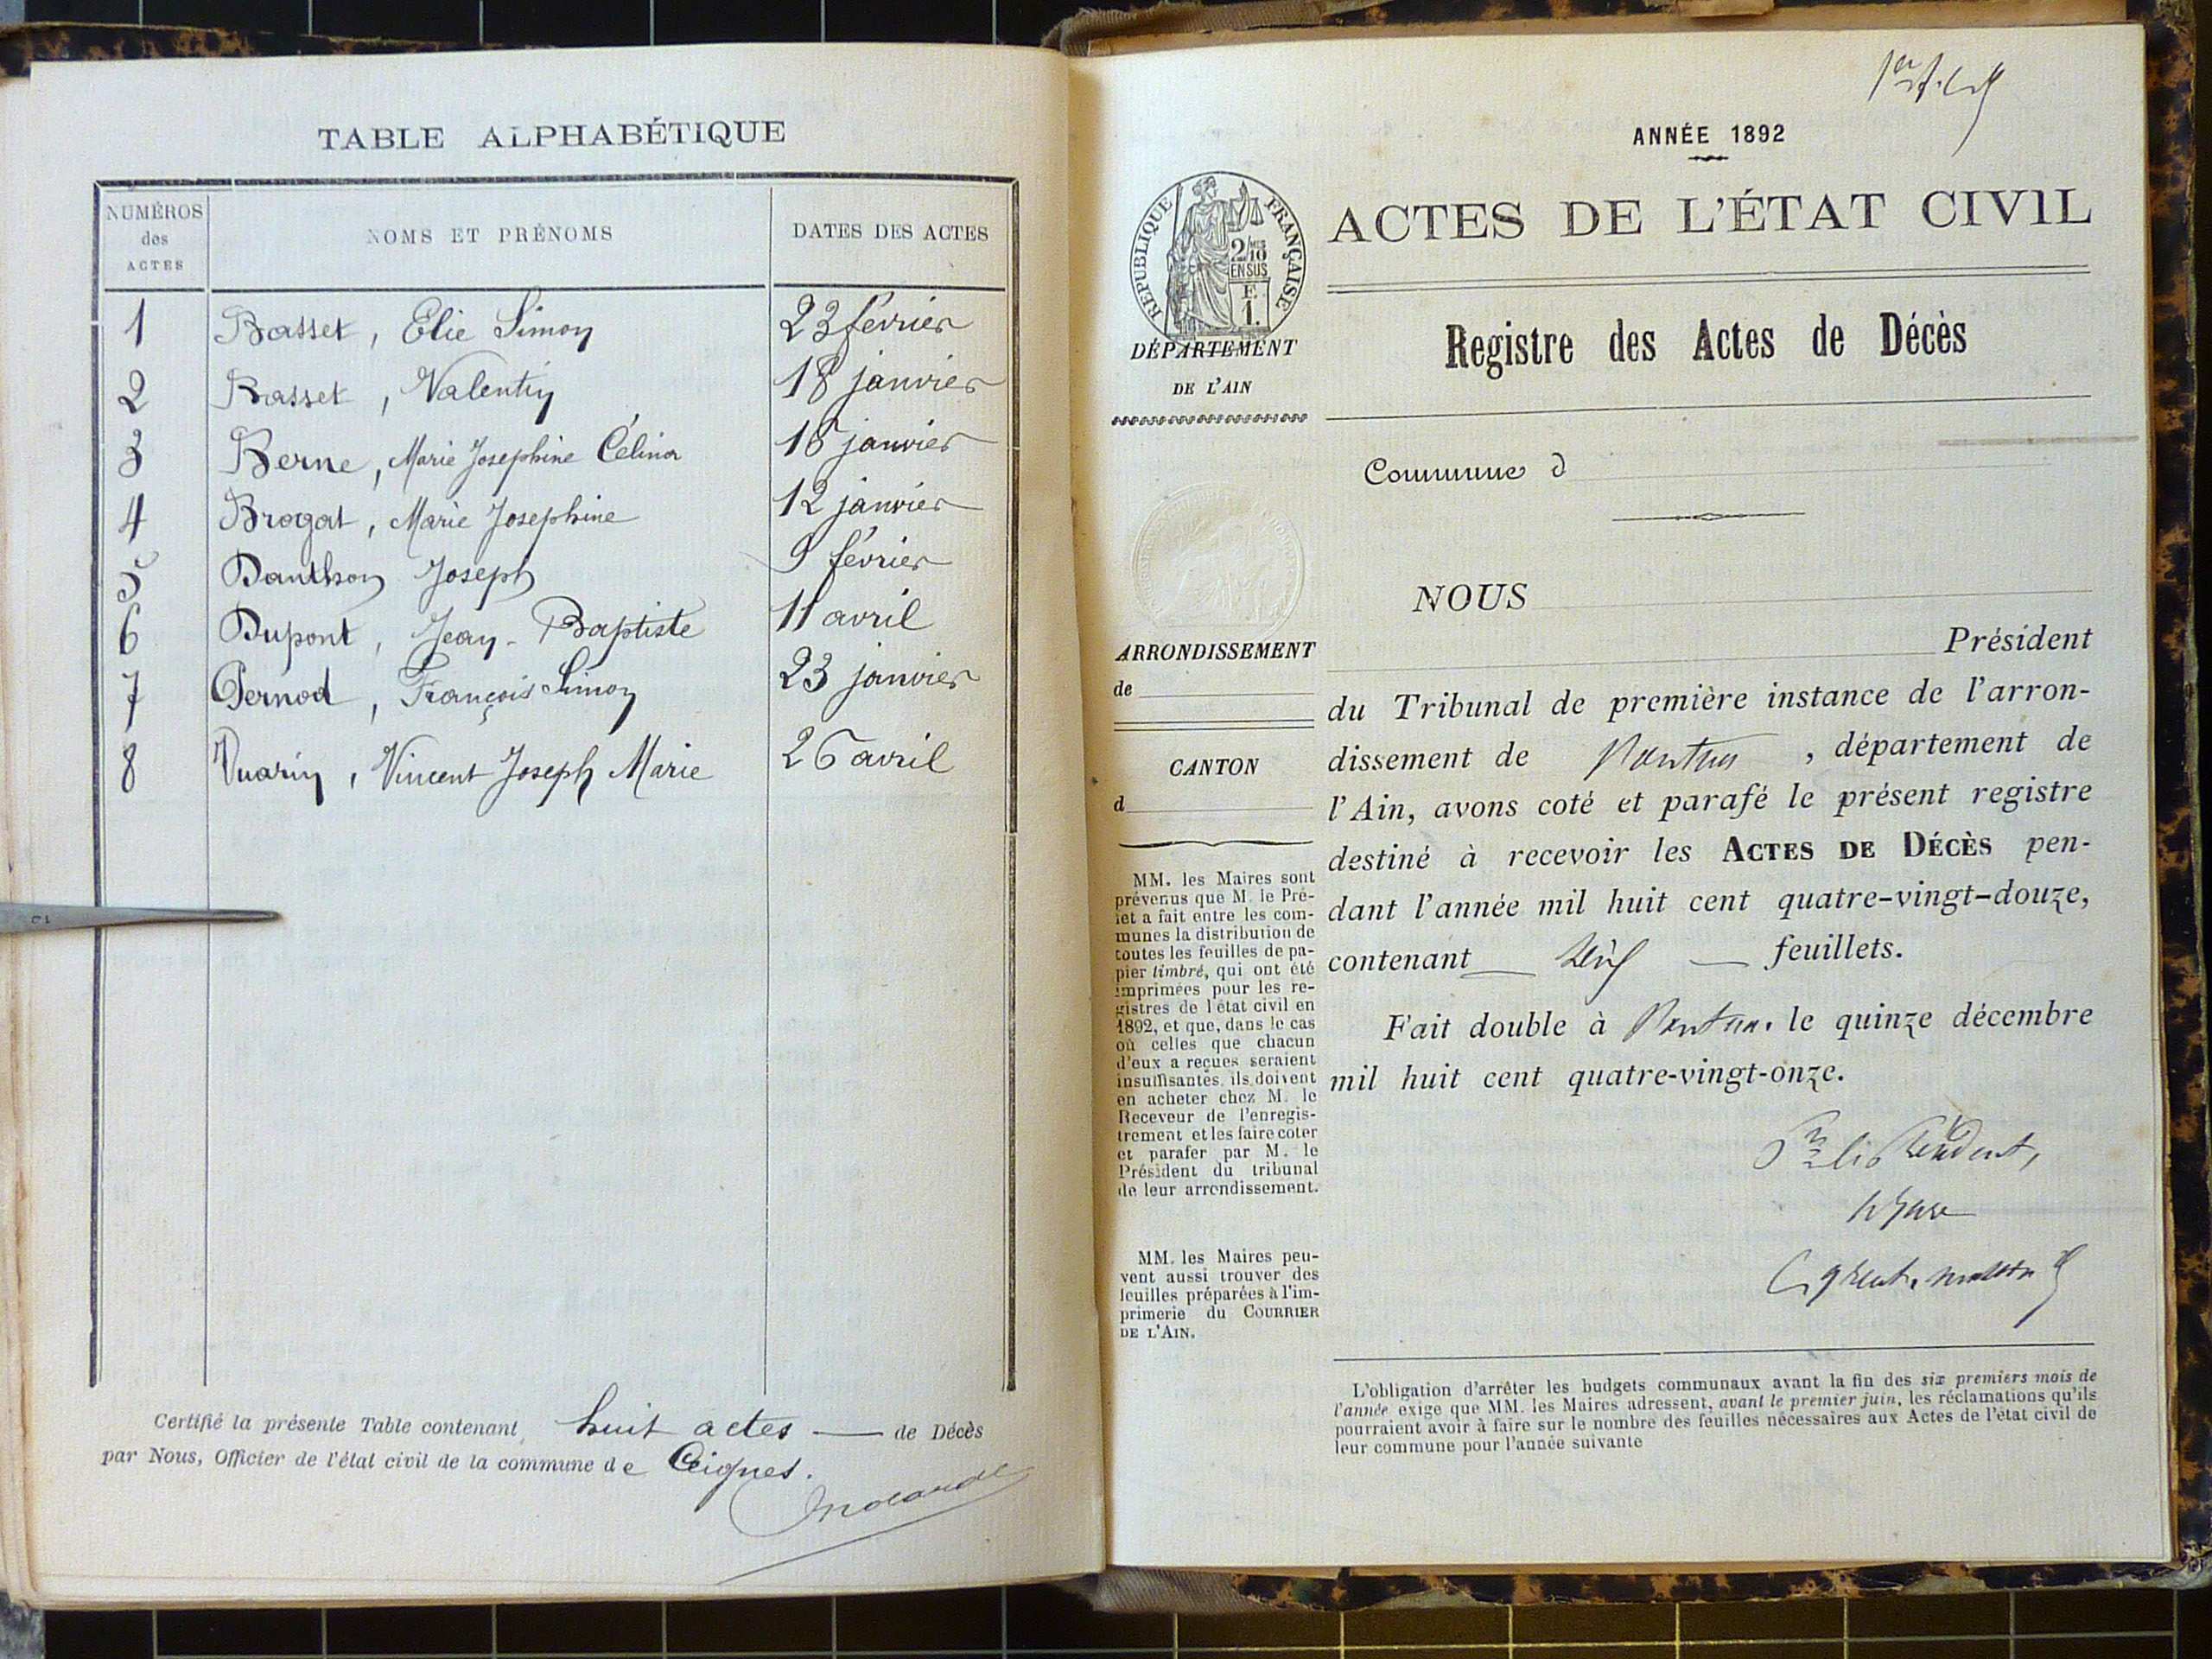 TABLE ALPHABÉTIQUE
NUMÉROS
des
ACTES
NOMS ET PRÉNOMS
DATES DES ACTES
1 Basset, Elie Simon 23 février
2 Basset, Valentin 18 janvier
3 Berne, Marie Josephine Célina 16 janvier
4 Brogat, Marie Josephine 12 janvier
5 Danthon Joseph 9 février
6 Dupont, Jean-Baptiste 11 avril
7 Pernod, François Simon 23 janvier
8 Vuarin, Vincent Joseph Marie 26 avril
Certifié la présente Table contenant huit actes — de Décès
par Nous, Officier de l'état civil de la commune de Ceignes.
ANNÉE 1892
RÉPUBLIQUE FRANÇAISE
2/10
EN SUS
F.
1.
ACTES DE L'ÉTAT CIVIL
DÉPARTEMENT
DE L'AIN
Registre des Actes de Décès
Commune d
NOUS
Président
du Tribunal de première instance de l'arron-
dissement de Nantua, département de
l'Ain, avons coté et parafé le présent registre
destiné à recevoir les ACTES DE DÉCÈS pen-
dant l'année mil huit cent quatre-vingt-douze,
contenant feuillets.
Fait double à Nantua, le quinze décembre
mil huit cent quatre-vingt-onze.
ARRONDISSEMENT
de
CANTON
d
MM. les Maires sont
prévenus que M. le Pré-
fet a fait entre les com-
munes la distribution de
toutes les feuilles de pa-
pier timbré, qui ont été
imprimées pour les re-
gistres de l'état civil en
1892, et que, dans le cas
où celles que chacun
d'eux a reçues seraient
insuffisantes, ils doivent
en acheter chez M. le
Receveur de l'enregis-
trement et les faire coter
et parafer par M. le
Président du tribunal
de leur arrondissement.
MM. les Maires peu-
vent aussi trouver des
feuilles préparées à l'im-
primerie du COURRIER
DE L'AIN.
L'obligation d'arrêter les budgets communaux avant la fin des six premiers mois de
l'année exige que MM. les Maires adressent, avant le premier juin, les réclamations qu'ils
pourraient avoir à faire sur le nombre des feuilles nécessaires aux Actes de l'état civil de
leur commune pour l'année suivante